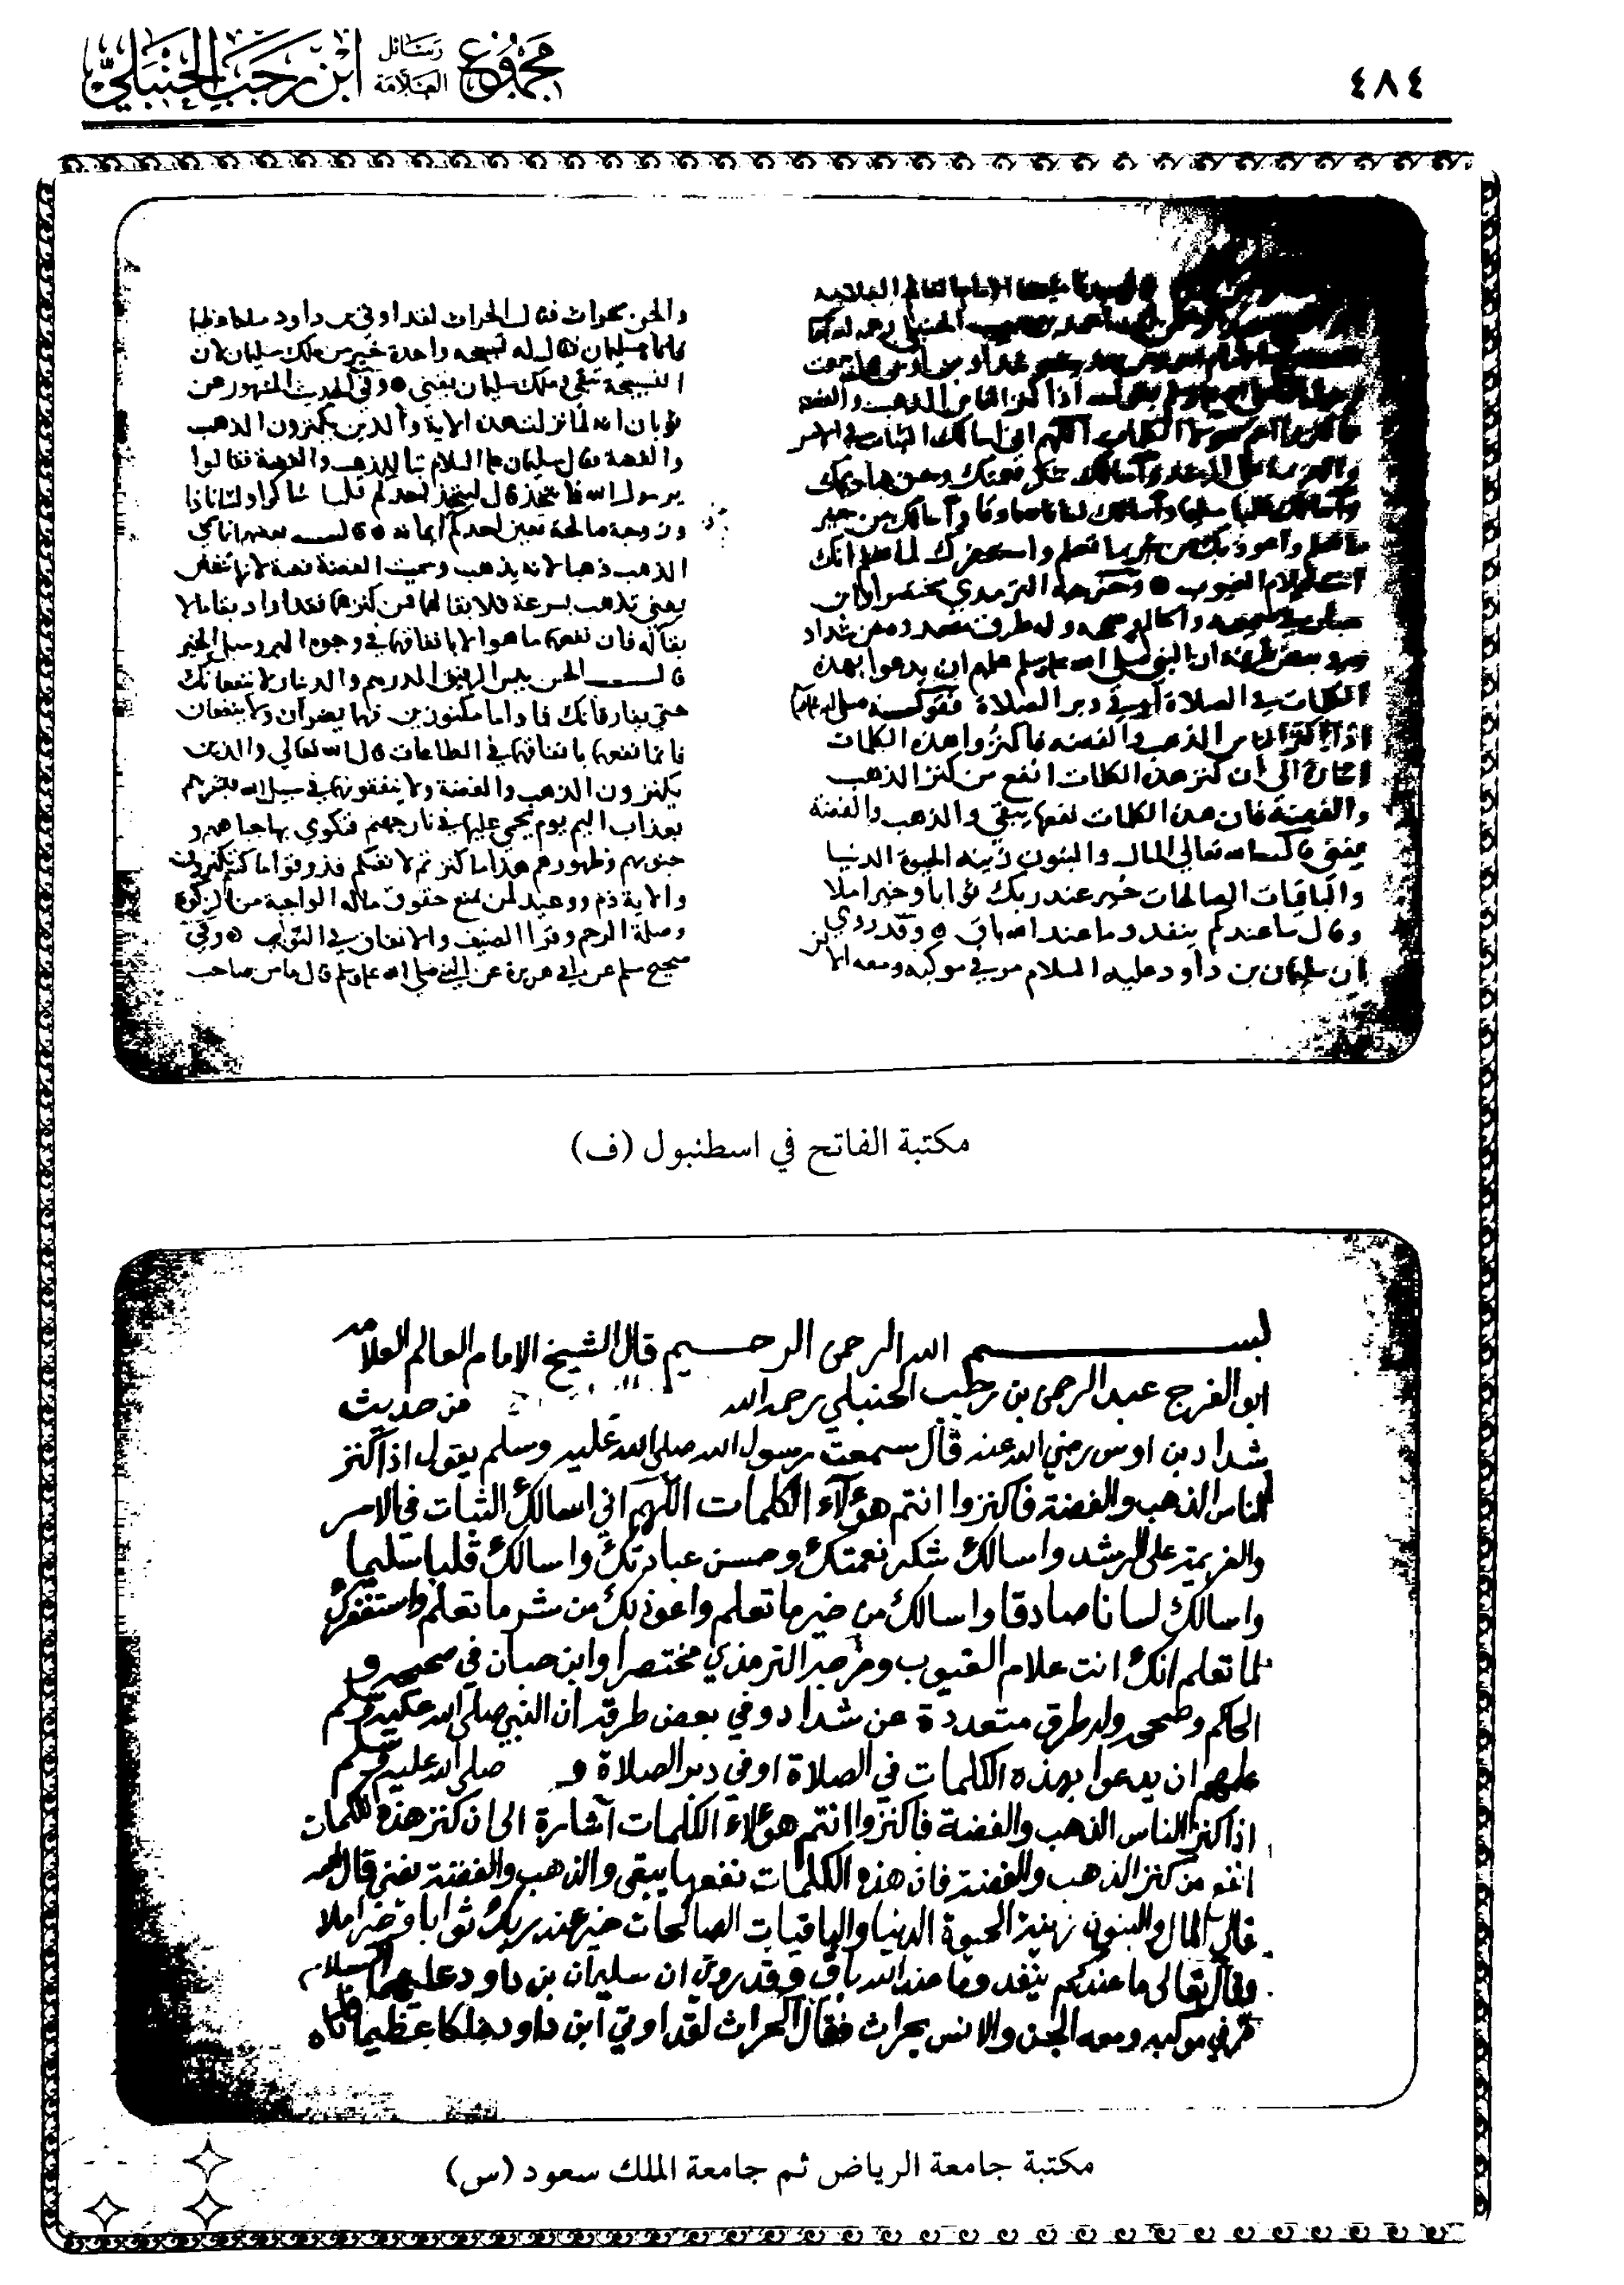 مجموع رسائل العلامة ابن رجب الحنبلي
٤٨٤
اذا اكنز الناس الذهب والفضة
الكلمات اللهم اني اسالك الثبات في الامر
انت علام الغيوب وخرجه الترمذي مختصرا وابن
الكلمات في الصلاة او في دبر الصلاة فقوله صلى الله عليه
اذا اكنز الناس الذهب والفضه فاكنزوا هذه الكلمات
اشارة الى ان كنز هذه الكلمات انفع من كنز الذهب
والفضة فان هذه الكلمات نفعها يبقى والذهب والفضة
يفنى قال الله تعالي المال والبنون زينه الحيوة الدنيا
والباقيات الصالحات خير عند ربك ثوابا وخير املا
وقال ما عندكم ينفد وما عند الله باق وقد روي
ان سليمان بن داود عليه السلام مر في موكبه ومعه الانس
والجن بحراث فقال الحراث لقد اوتي بن داود ملكا عظيما
فاتاه سليمان فقال له تسبيحه واحدة خير من ملك سليمان لان
التسبيحة تبقى وملك سليمان يفنى وفي الحديث المشهور عن
ثوبان انه لما نزلت هذه الاية والذين يكنزون الذهب
والفضة قال سليمان عليه السلام تبا للذهب والفضة فقالوا
يرسول الله فما نتخذ قال ليتخذ احدكم قلبا شاكرا ولسانا ذاكرا
وزوجة صالحة تعين احدكم ايمانه قال بعضهم انما سمي
الذهب ذهبا لانه يذهب وسميت الفضة فضة لانها تنفض
يعني تذهب بسرعة فلا بقا لها فمن كنزها فقد اراد بقا ما لا
بقا له فان نفعها ما هو الا بانفاقها في وجوه البر وسبل الخير
قال الحسن بيس الرفيق الدرهم والدينار لا ينفعانك
حتى يفارقانك فما داما مكنوزين فهما يضران ولا ينفعان
فانما نفعهما بانفاقهما في الطاعات قال الله تعالي والذين
يكنزون الذهب والفضة ولا ينفقونها في سبيل الله فبشرهم
بعذاب اليم يوم يحمى عليها في نار جهنم فتكوى بها جباههم و
جنوبهم وظهورهم هذا ما كنزتم لانفسكم فذوقوا ما كنتم تكنزون
والاية ذم ووعيد لمن يمنع حقوق ماله الواجبة من الزكوة
وصلة الرحم وقرا الضيف والانفاق في النوايب وفي
صحيح مسلم عن ابي هريرة عن النبي صلى الله عليه وسلم قال ما من صاحب
مكتبة الفاتح في اسطنبول (ف)
بسم الله الرحمن الرحيم قال الشيخ الامام العالم العلامه
ابو الفرج عبد الرحمن بن رجب الحنبلي رحمه الله من حديث
شداد بن اوس رضي الله عنه قال سمعت رسول الله صلى الله عليه وسلم يقول اذا اكنز
الناس الذهب والفضة فاكنزوا انتم هؤلآء الكلمات اللهم اني اسالك الثبات في الامر
والعزيمة على الرشد واسالك شكر نعمتك وحسن عبادتك واسالك قلبا سليما
واسالك لسانا صادقا واسالك من خير ما تعلم واعوذ بك من شر ما تعلم واستغفرك
لما تعلم انك انت علام الغيوب وخرجه الترمذي مختصرا وابن حبان في صحيحه و
الحاكم وصححه وله طرق متعددة عن شداد وفي بعض طرقه ان النبي صلى الله عليه وسلم
علمهم ان يدعوا بهذه الكلمات في الصلاة او في دبر الصلاة و صلى الله عليه وسلم
اذا كنز الناس الذهب والفضة فاكنزوا انتم هؤلاء الكلمات اشارة الى ان كنز هذه الكلمات
انفع من كنز الذهب والفضة فان هذه الكلمات نفعها يبقى والذهب والفضة يفنى قال الله
تعالى المال والبنون زينة الحيوة الدنيا والباقيات الصالحات خير عند ربك ثوابا وخير املا
وقال تعالى ما عندكم ينفد وما عند الله باق وقد روي ان سليمان بن داود عليهما السلام
مر في موكبه ومعه الجن والانس بحراث فقال الحراث لقد اوتي ابن داود ملكا عظيما فاتاه
مكتبة جامعة الرياض ثم جامعة الملك سعود (س)